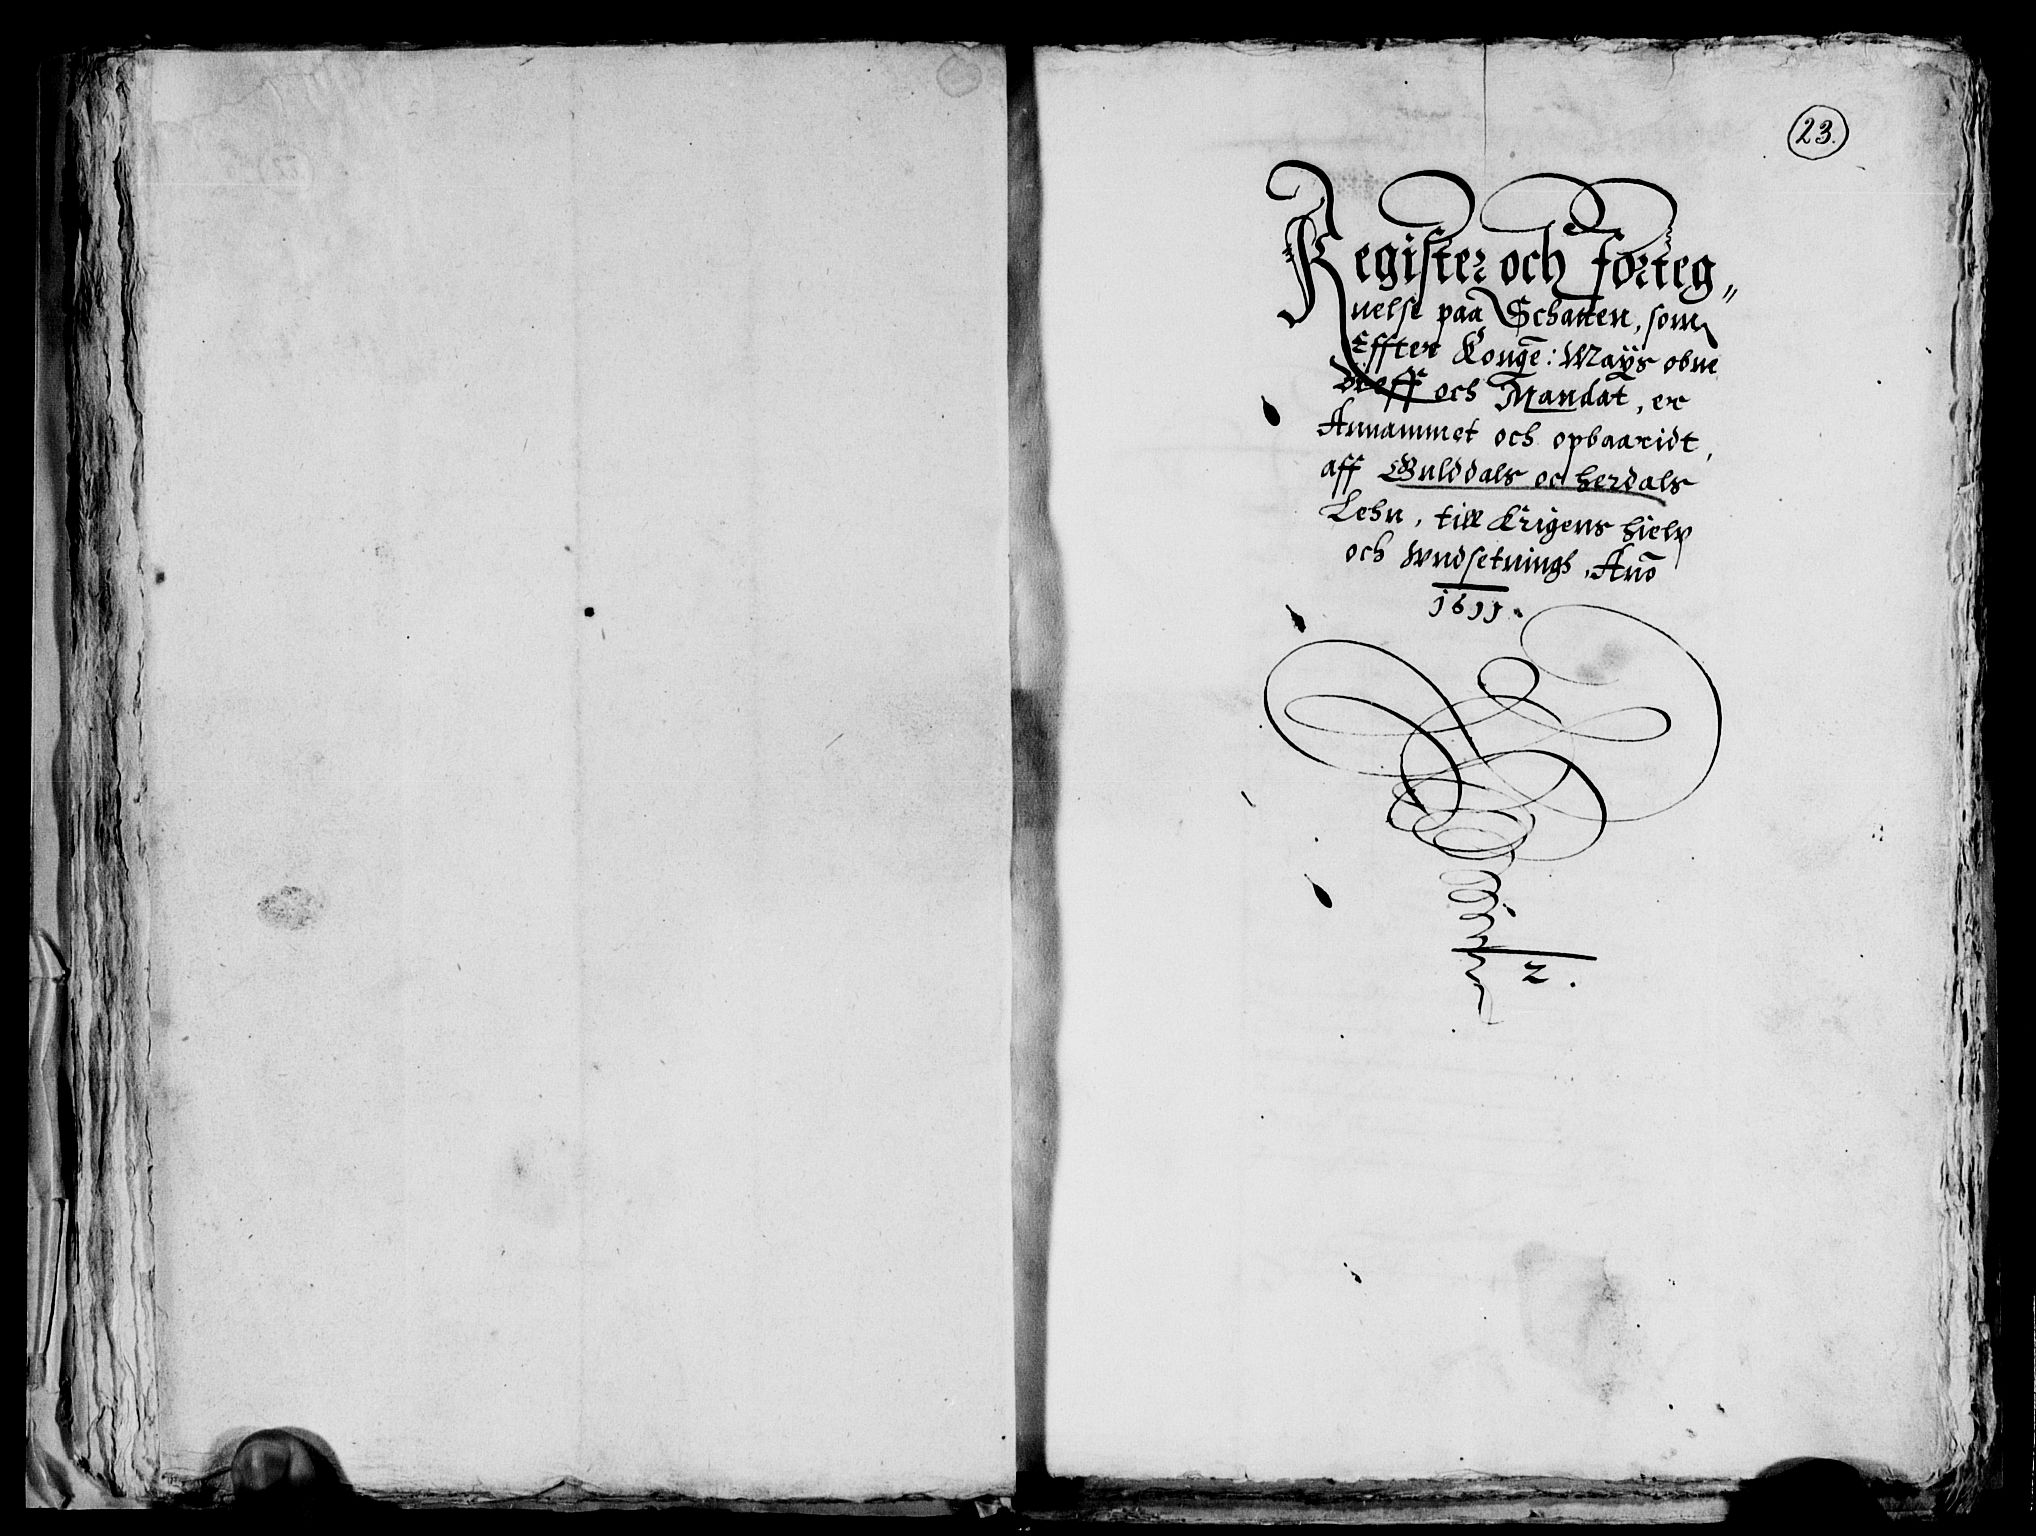 23.
Register och forteg„
nelse paa Schatten, som
Effter Konge: Mayts obne
Breff och Mandat, er
Annammet och opbaaridt,
aff Gulddals oc herdals
Lehn, till Krigens hielp
och Vndsetnings, Año
1611.
2.